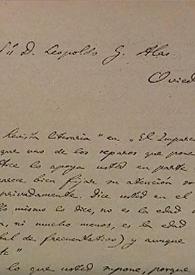 Sr. D. Leopoldo G. Alas
Oviedo
Revista literaria" en „El Imparc
que uno de los reparos que pone
dice lo apoya usted en parte
parece bien fijar su atención so
privadamente. Dice usted en el
lo mismo lo dice, no es la edad
a, ni mucho menos, es la edad
bal de frecuentativo) y aunque
lo que usted supone, porque